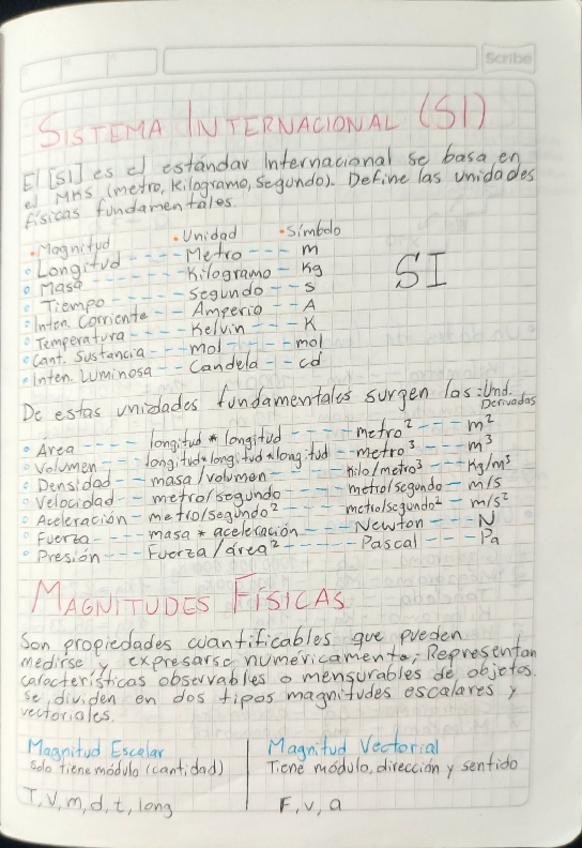 Scribe
SISTEMA INTERNACIONAL (SI)
El [SI] es el estándar Internacional se basa en
el MKS (metro, Kilogramo, Segundo). Define las unidades
físicas fundamentales.
• Magnitud • Unidad • Símbolo
• Longitud ---- Metro --- m
• Masa ------- Kilogramo -- Kg
• Tiempo ------ Segundo -- s
• Inten. Corriente -- Amperio -- A
• Temperatura --- Kelvin --- K
• Cant. Sustancia -- mol ---- mol
• Inten. Luminosa -- Candela -- cd
SI
De estas unidades fundamentales surgen las: Und.
Derivadas
• Área ---- longitud * longitud ---- metro² --- m²
• Volumen --- longitud*longitud*longitud -- metro³ --- m³
• Densidad -- masa/volumen ---- Kilo/metro³ --- Kg/m³
• Velocidad -- metro/segundo ---- metro/segundo -- m/s
• Aceleración - metro/segundo² ---- metro/segundo² - m/s²
• Fuerza --- masa * aceleración --- Newton --- N
• Presión --- Fuerza/área² ------ Pascal --- Pa
MAGNITUDES FÍSICAS
Son propiedades cuantificables que pueden
medirse y expresarse numéricamente; Representan
características observables o mensurables de objetos.
se dividen en dos tipos magnitudes escalares y
vectoriales.
Magnitud Escalar
Solo tiene módulo (cantidad)
T, V, m, d, t, long
Magnitud Vectorial
Tiene módulo, dirección y sentido
F, v, a